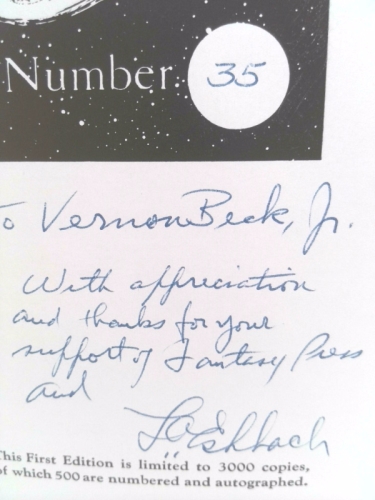 Number 35
To Vernon Beck, Jr.
With appreciation
and thanks for your
support of Fantasy Press
and
L.A. Eshbach
This First Edition is limited to 3000 copies,
of which 500 are numbered and autographed.